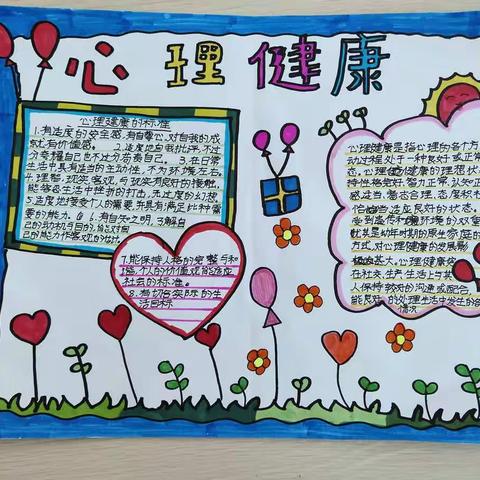 心理健康
心理健康的标准
1.有适度的安全感,有自尊心,对自我的成
就有价值感。 2.适度地自我批评,不过
分夸耀自己也不过分苛责自己。 3.在日常
生活中具有适当的主动性,不为环境左右。
4.理智,现实,客观,与现实有良好的接触,
能够容忍生活中挫折的打击,无过度的幻想。
5.适度地接受个人的需要,并具有满足此种需
要的能力。 6.有自知之明,了解自
己的动机与目的,能对自
己的能力作客观的估计。
7.能保持人格的完整与和
谐,个人的价值观能适应
社会的标准。
8.有切合实际的生
活目标
心理健康是指心理的各个方
动过程处于一种良好或正常
态。心理健康的理想状
持性格完好、智力正常、认知正
感适当、意志合理、态度积极
恰当、适应良好的状态。
受到遗传和环境的双重
其是幼年时期的原生家庭的
方式,对心理健康的发展影
极大。心理健康
在社交、生产、生活上与其
人保持较好的沟通或配合,
能良好的处理生活中发生的各
情况